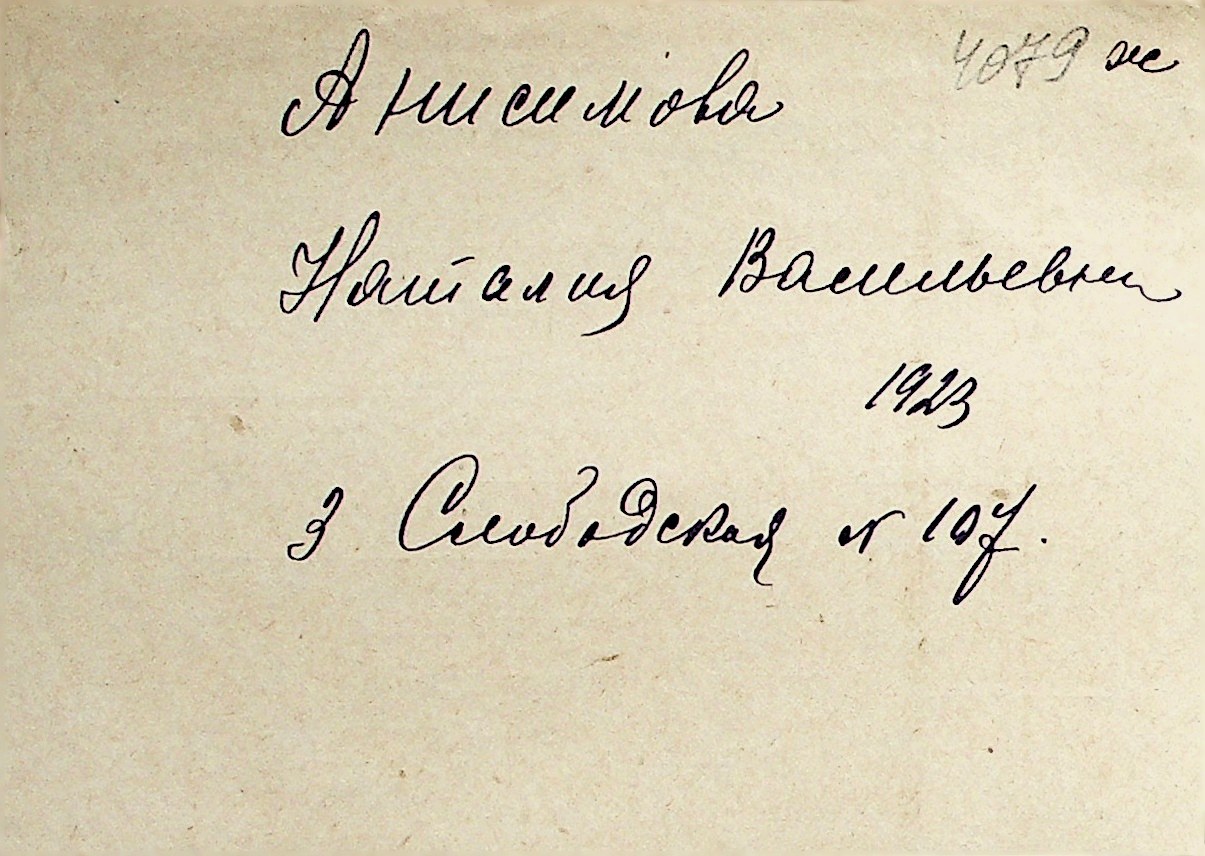 4079 ж
Анисимова
Наталия Васильевна
1923
3 Слободская N 107.